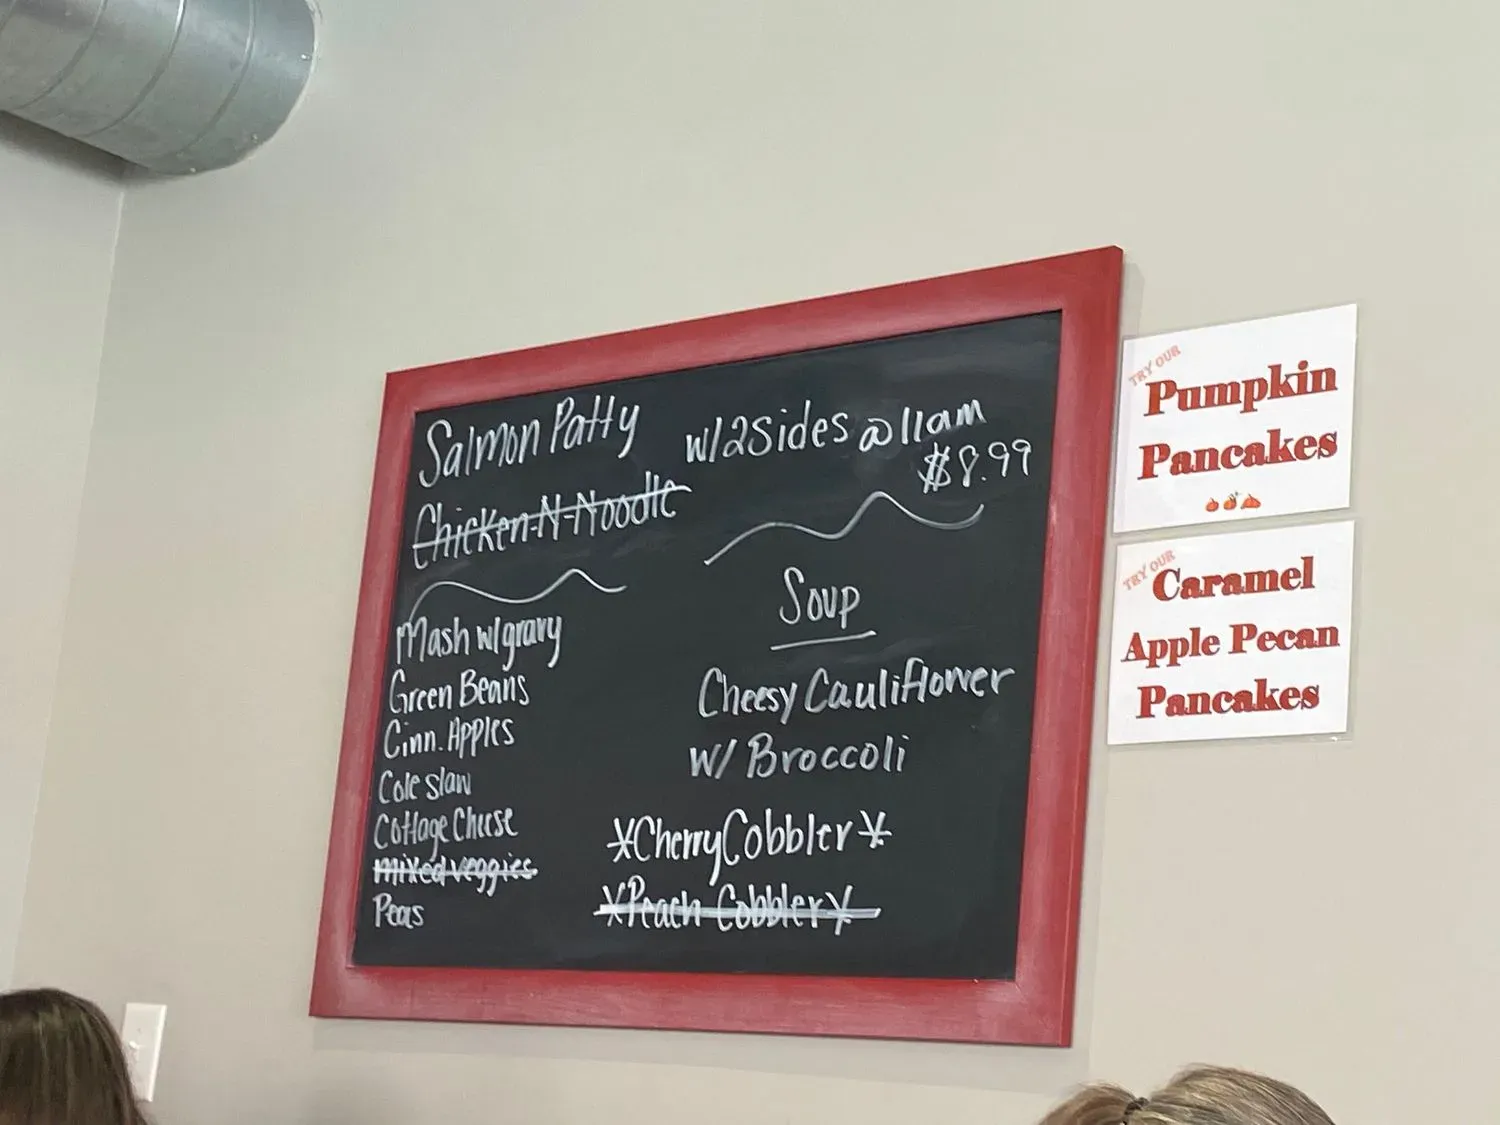 Salmon Patty w/2 sides @ 11am
$8.99
Chicken-N-Noodle
Mash w/gravy
Green Beans
Cinn. Apples
Cole slaw
Cottage Cheese
Mixed veggies
Peas
Soup
Cheesy Cauliflower
w/ Broccoli
*Cherry Cobbler*
*Peach Cobbler*
TRY OUR
Pumpkin
Pancakes
TRY OUR
Caramel
Apple Pecan
Pancakes